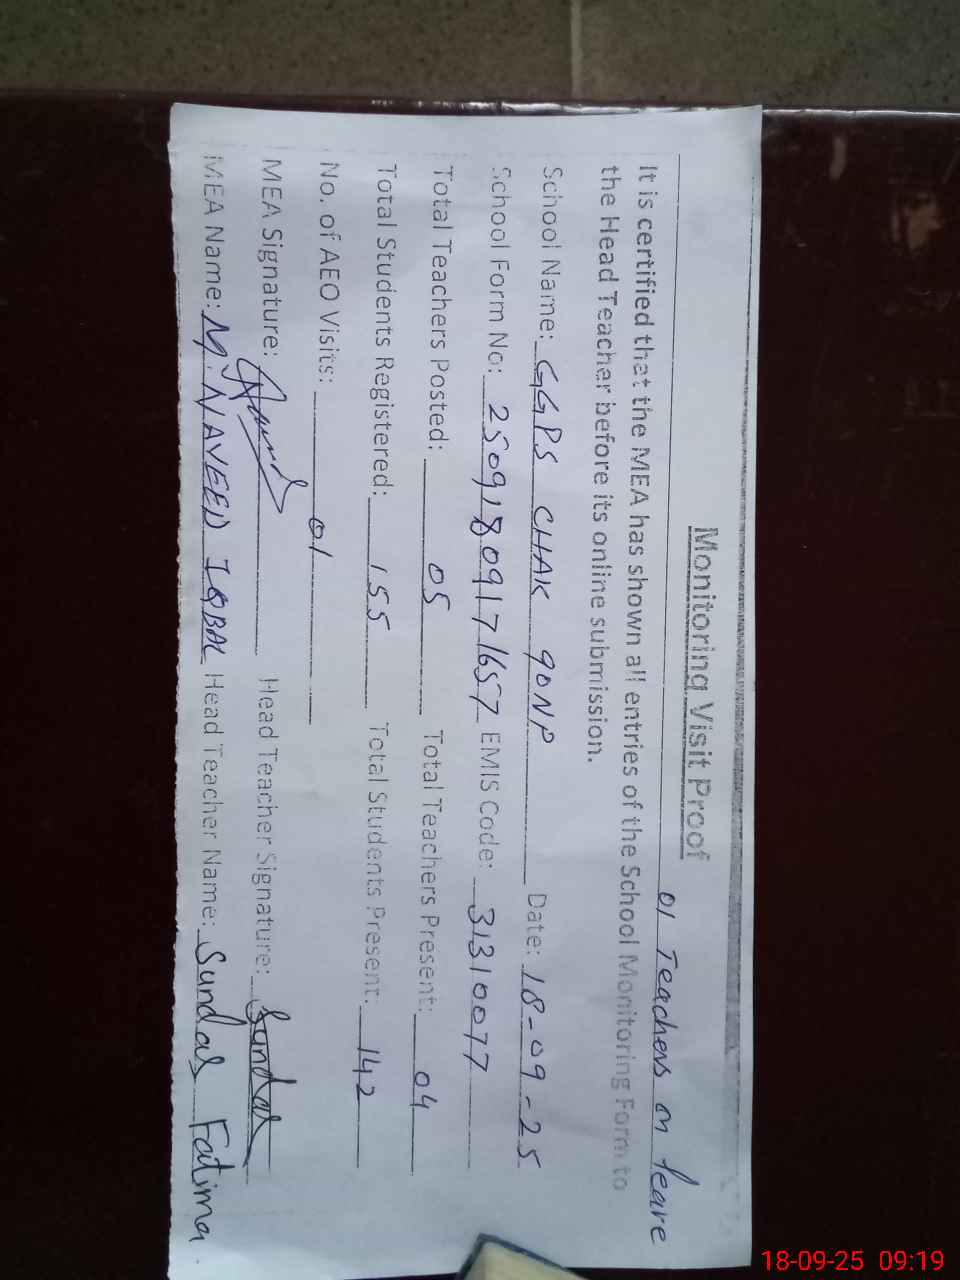 Monitoring Visit Proof
01 Teachers on leave
It is certified that the MEA has shown all entries of the School Monitoring Form to
the Head Teacher before its online submission.
School Name: GGPS CHAK 90NP Date: 18-09-25
School Form No: 25091809171657 EMIS Code: 31310077
Total Teachers Posted: 05 Total Teachers Present: 04
Total Students Registered: 155 Total Students Present: 142
No. of AEO Visits: 01
MEA Signature: Head Teacher Signature: Sundas
MEA Name: M. NAVEED IQBAL Head Teacher Name: Sundas Fatima
18-09-25 09:19